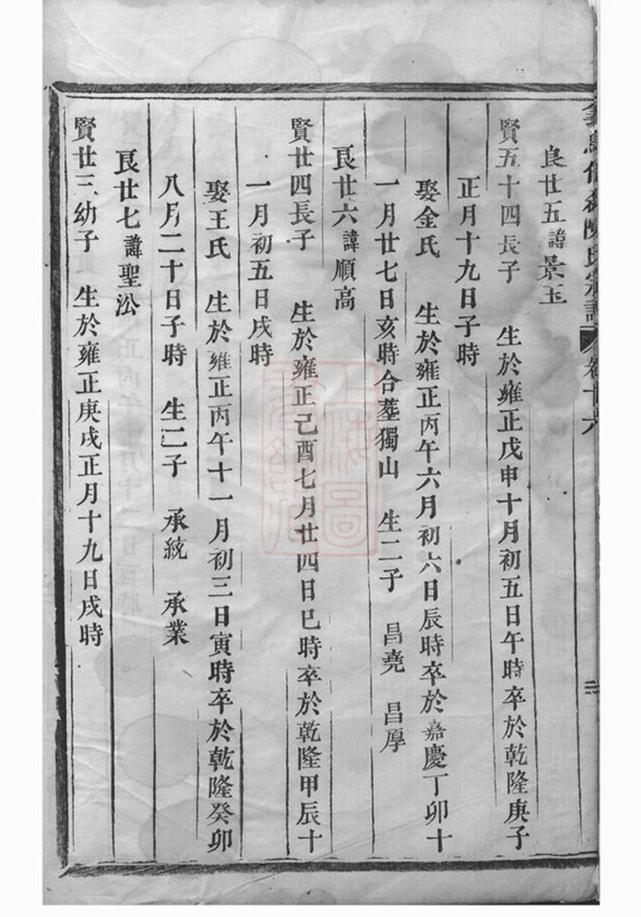 氏宗譜 卷十六
二
良廿五諱景玉
賢五十四長子 生於雍正戊申十月初五日午時卒於乾隆庚子
正月十九日子時
娶金氏 生於雍正丙午六月初六日辰時卒於嘉慶丁卯十
一月廿七日亥時合墓獨山 生二子 昌堯 昌厚
良廿六諱順高
賢廿四長子 生於雍正己酉七月廿四日巳時卒於乾隆甲辰十
一月初五日戌時
娶王氏 生於雍正丙午十一月初三日寅時卒於乾隆癸卯
八月二十日子時 生二子 承統 承業
良廿七諱聖訟
賢廿三幼子 生於雍正庚戌正月十九日戌時